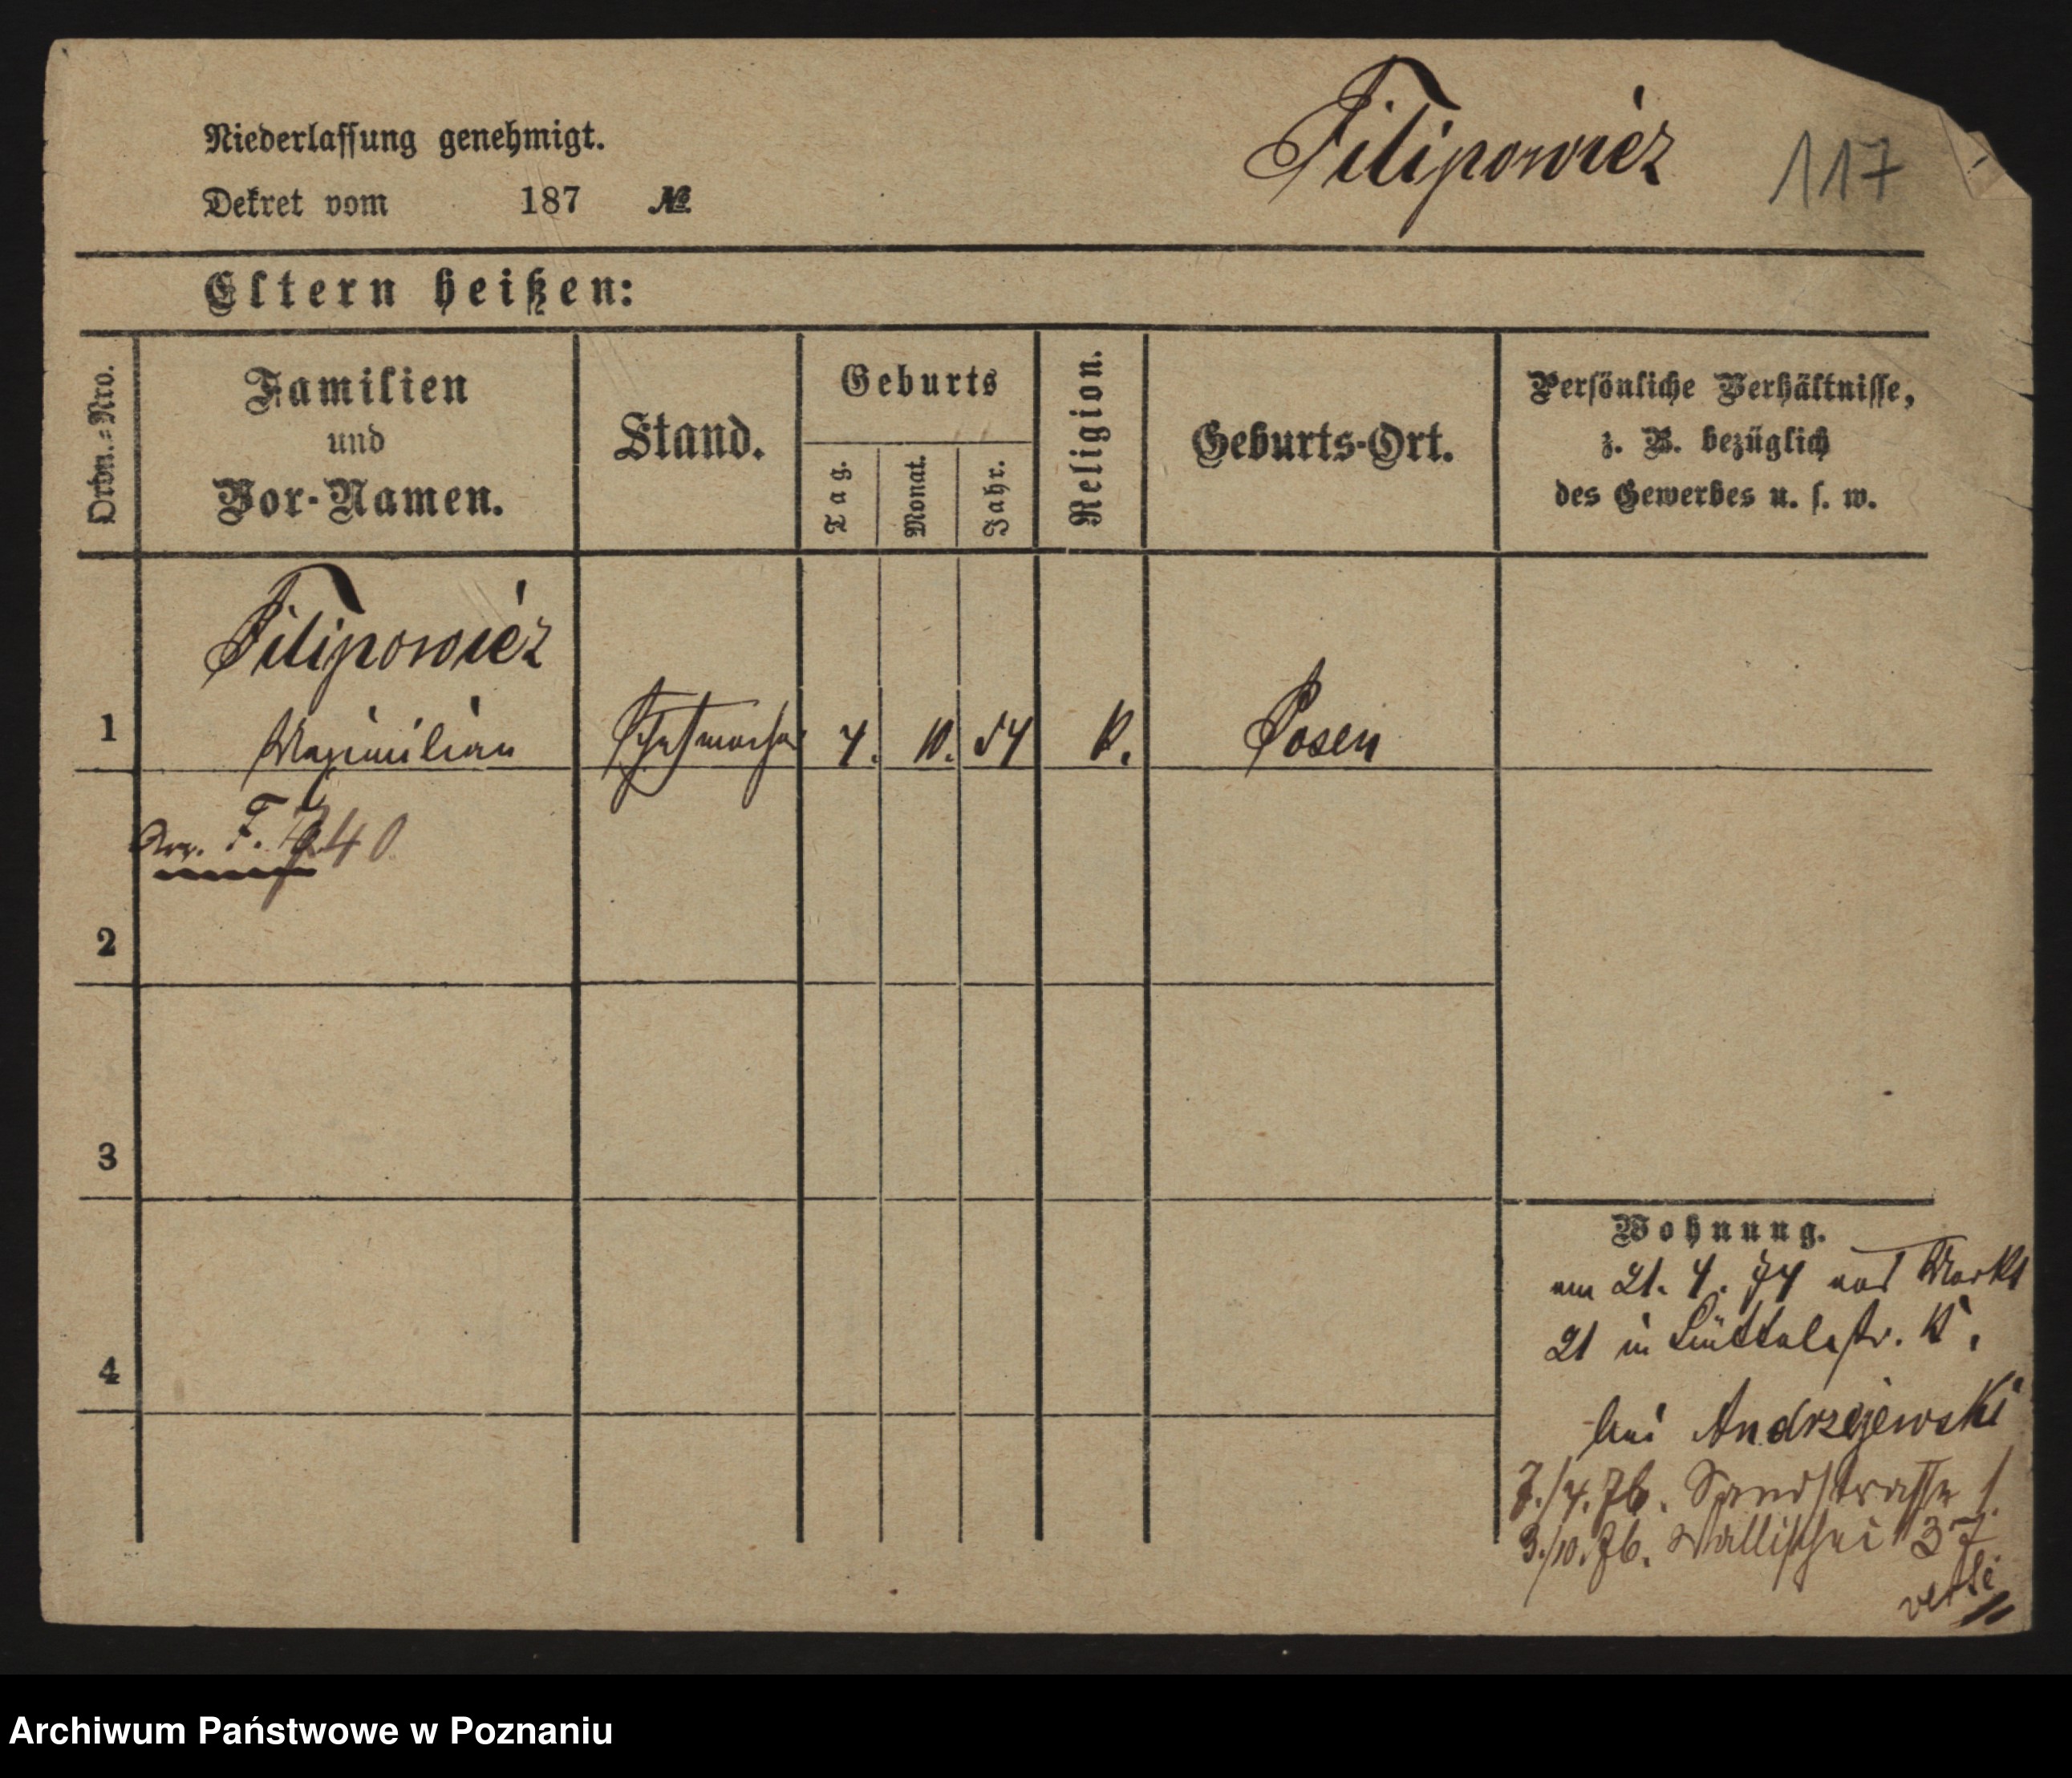 Filipowicz
117
Niederlassung genehmigt.
Dekret vom 187 №
Eltern heißen:
Ordn.=Nro.
Familien
und
Vor-Namen.
Stand.
Geburts
Tag.
Monat.
Jahr.
Religion.
Geburts-Ort.
Persönliche Verhältnisse,
z. B. bezüglich
des Gewerbes u. s. w.
Filipowicz
1 Maximilian 4. 10. 54 K. Posen
F. 40
2
3
4
Wohnung.
am 21. 4. 74 von Markt
21 in
bei Andrzejewski
7./4. 76. Sandstrasse 1.
3./10. 76. Wallischei 37
verte
Archiwum Państwowe w Poznaniu